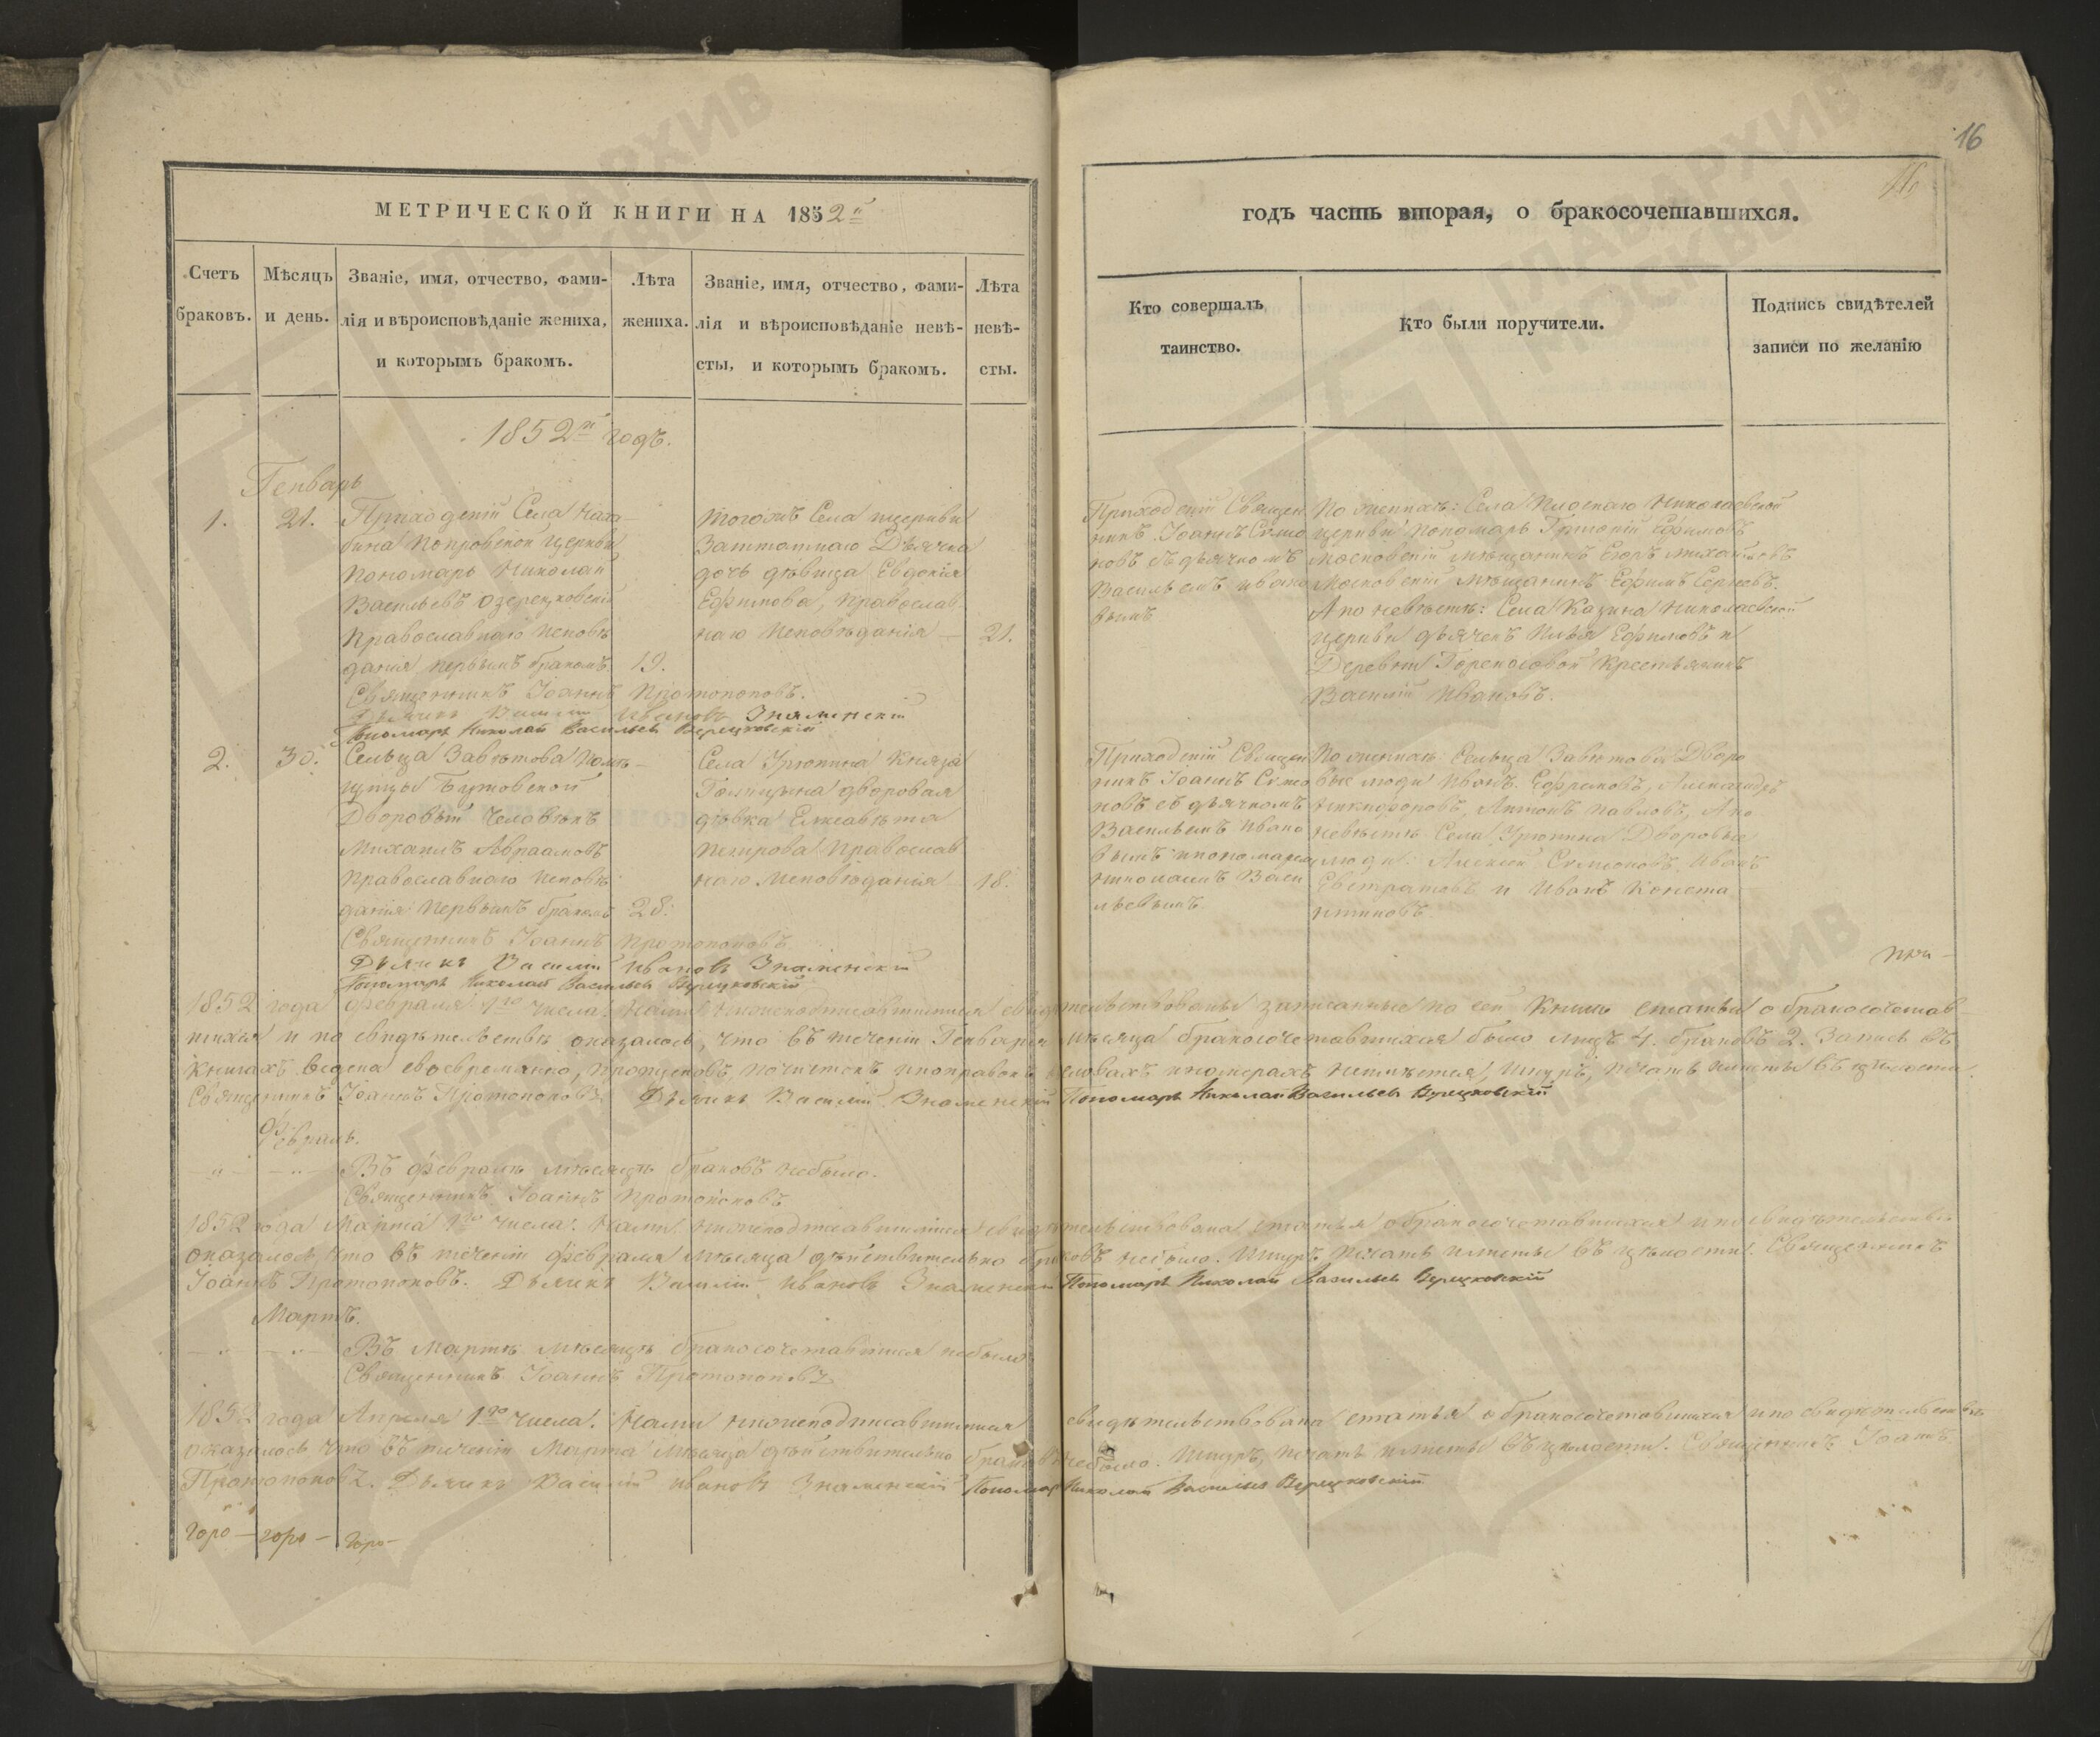 16
МЕТРИЧЕСКОЙ КНИГИ НА 1852й
годъ часть вторая, о бракосочетавшихся.
Счетъ браковъ.
Мѣсяцъ и день.
Званіе, имя, отчество, фами-
лія и вѣроисповѣданіе жениха,
и которымъ бракомъ.
Лѣта
жениха.
Званіе, имя, отчество, фами-
лія и вѣроисповѣданіе невѣ-
сты, и которымъ бракомъ.
Лѣта
невѣ-
сты.
Кто совершалъ
таинство.
Кто были поручители.
Подпись свидѣтелей
записи по желанію
1852й годъ.
Генварь
1.
21.
Приходскій Села Наха-
бина Покровской Церкви
Пономарь Николай
Васильевъ Озерецковскій
Православнаго Исповѣ
данія первымъ бракомъ
19.
тогожъ Села церкви
Заштатнаго Дьячка
дочь дѣвица Евдокія
Ефимова, Православ
наго Исповѣданія —
21.
Приходскій Священ
никъ Іоаннъ Симео
новъ съ дьячкомъ
Васильемъ Ивано
вымъ
По женихѣ: Села Николаевской
церкви пономарь Ефимовъ
Московскій мѣщанинъ Егоръ Михайловъ
Московскій мѣщанинъ Ефимъ Сергеевъ,
А по невѣстѣ: Села Казина Николаевской
церкви дьячекъ Илья Ефимовъ и
Деревни Крестьянинъ
Василій Ивановъ.
Священникъ Іоаннъ Протопоповъ.
Дьячекъ Василій Ивановъ Знаменскій
Пономарь Николай Васильевъ Озерецковскій
2.
30.
Сельца Завѣтова Помѣ-
щицы Бутовской
Дворовый Человѣкъ
Михаилъ Авраамовъ
Православнаго Исповѣ
данія первымъ бракомъ
28.
Села Князя
Голицына дворовая
дѣвка Елисавета
Петрова Православ
наго Исповѣданія
18.
Приходскій Священ
никъ Іоаннъ Симео
новъ съ дьячкомъ
Васильемъ Ивано
вымъ и пономаремъ
Николаемъ Васи
льевымъ
По женихѣ: Сельца Завѣтова Дворо
вые люди Иванъ Ефремовъ, Александръ
Никифоровъ, Антонъ Павловъ, А по
невѣстѣ Села Дворовые
люди: Алексей Симеоновъ, Иванъ
Евстратовъ и Иванъ Конста
нтиновъ.
Священникъ Іоаннъ Протопоповъ.
Дьячекъ Василій Ивановъ Знаменскій
Пономарь Николай Васильевъ Озерецковскій
1852 года Февраля 1го числа. Нами нижеподписавшимися свидѣтельствованы записанные по сей книгѣ статьи о бракосочетав
шихся и по свидѣтельствѣ оказалось, что въ теченіи Генваря мѣсяца бракосочетавшихся было лицъ 4. браковъ 2. Запись въ
книгахъ ведена своевременно, пропусковъ, почистокъ и поправокъ въ словахъ и номерахъ неимѣется, Шнуръ, печать и листы въ цѣлости.
Священникъ Іоаннъ Протопоповъ. Дьячекъ Василій Знаменскій Пономарь Николай Васильевъ Озерецковскій
Февраль.
Въ Февралѣ мѣсяцѣ браковъ небыло.
Священникъ Іоаннъ Протопоповъ
1852 года Марта 1го числа. Нами нижеподписавшимися свидѣтельствована статья о бракосочетавшихся и по свидѣтельствѣ
оказалось, что въ теченіи Февраля мѣсяца дѣйствительно браковъ небыло. Шнуръ, печать и листы въ цѣлости. Священникъ
Іоаннъ Протопоповъ. Дьячекъ Василій Ивановъ Знаменскій Пономарь Николай Васильевъ Озерецковскій
Мартъ.
Въ Мартѣ мѣсяцѣ бракосочетавшихся небыло
Священникъ Іоаннъ Протопоповъ
1852 года Апреля 1го числа. Нами нижеподписавшимися свидѣтельствована статья о бракосочетавшихся и по свидѣтельствѣ
оказалось что въ теченіи Марта мѣсяца дѣйствительно браковъ небыло. Шнуръ, печать и листы въ цѣлости. Священникъ Іоаннъ
Протопоповъ. Дьячекъ Василій Ивановъ Знаменскій Пономарь Николай Васильевъ Озерецковскій
ГЛАВАРХИВ
МОСКВЫ